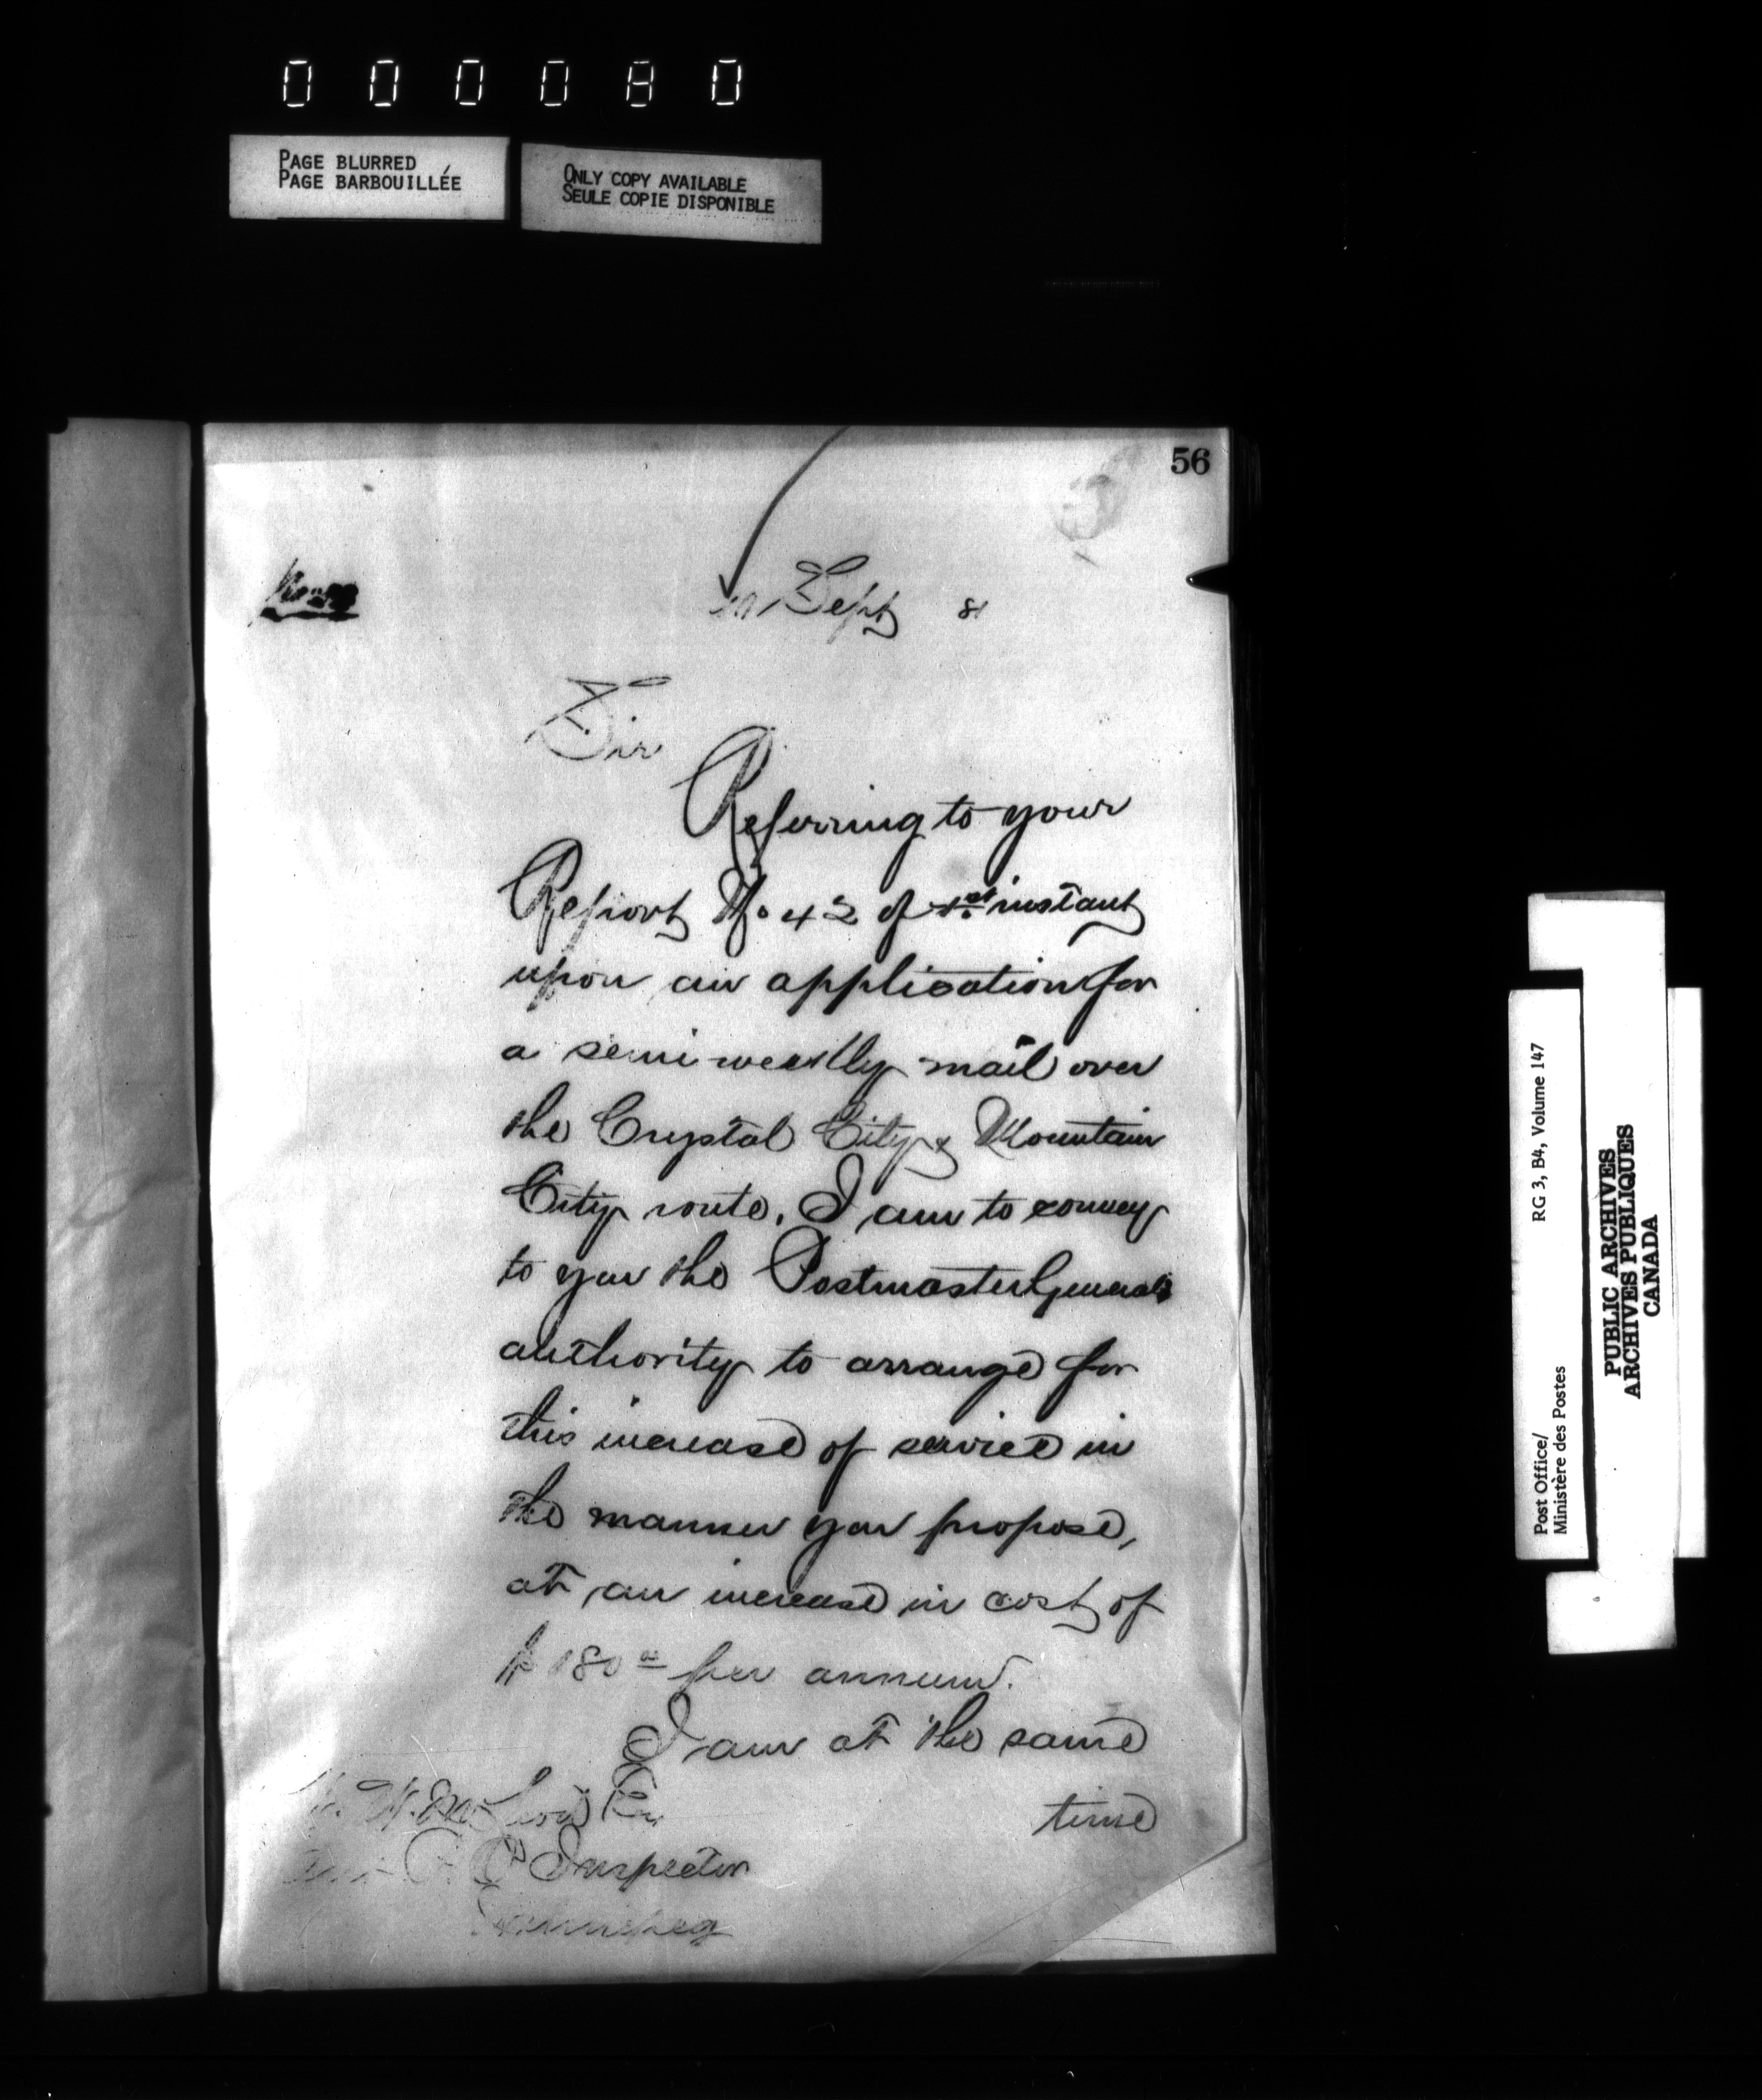 000080
PAGE BLURRED
PAGE BARBOUILLÉE
ONLY COPY AVAILABLE
SEULE COPIE DISPONIBLE
56
Sept 81
Sir
Referring to your
Report No 42 of 1st instant
upon an application for
a semi weekly mail over
the Crystal City & Mountain
City route, I am to convey
to you the Postmaster General's
authority to arrange for
this increase of service in
the manner you propose,
at an increase in cost of
$180 00 per annum.
I am at the same
time
W. McLeod Esq
P O Inspector
Winnipeg
Post Office/
Ministère des Postes
RG 3, B4, Volume 147
PUBLIC ARCHIVES
ARCHIVES PUBLIQUES
CANADA